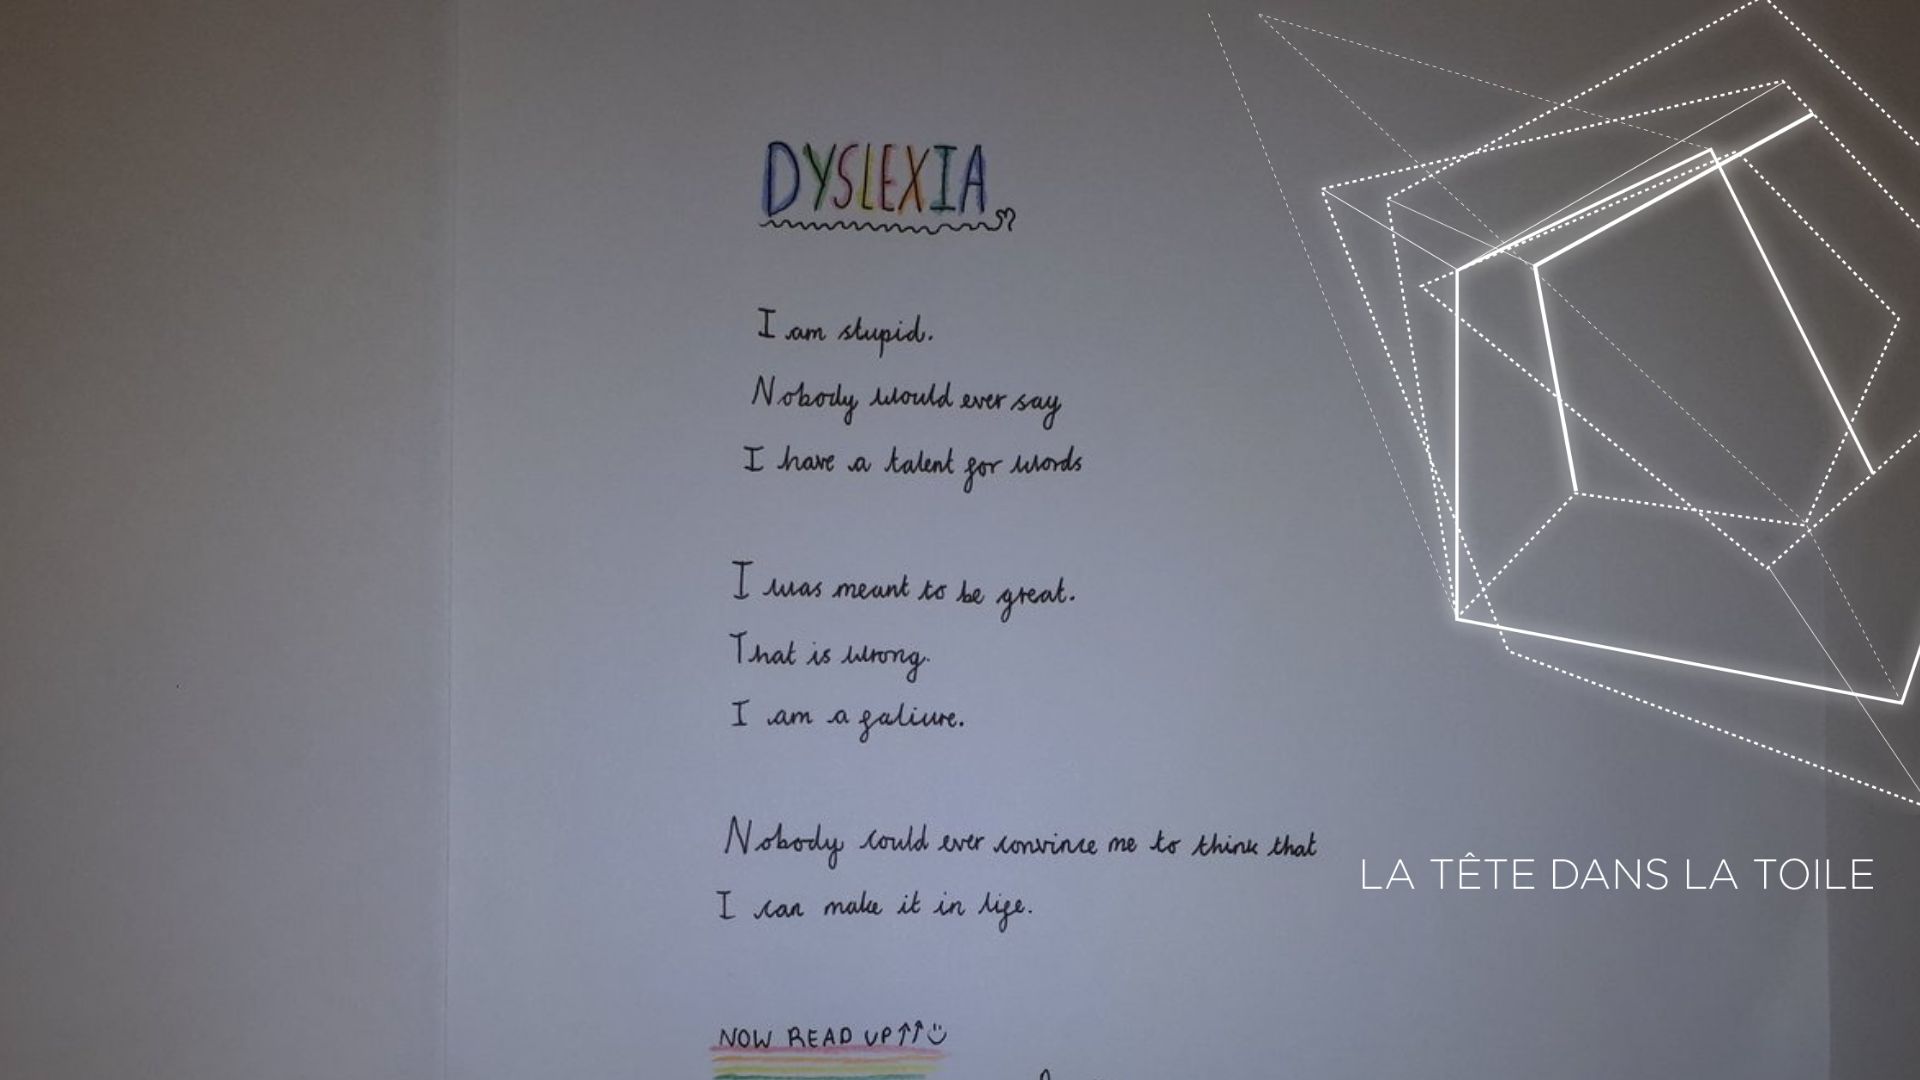 DYSLEXIA
I am stupid.
Nobody would ever say
I have a talent for words
I was meant to be great.
That is wrong.
I am a faliure.
Nobody could ever convince me to think that
I can make it in life.
NOW READ UP↑↑☺
LA TÊTE DANS LA TOILE